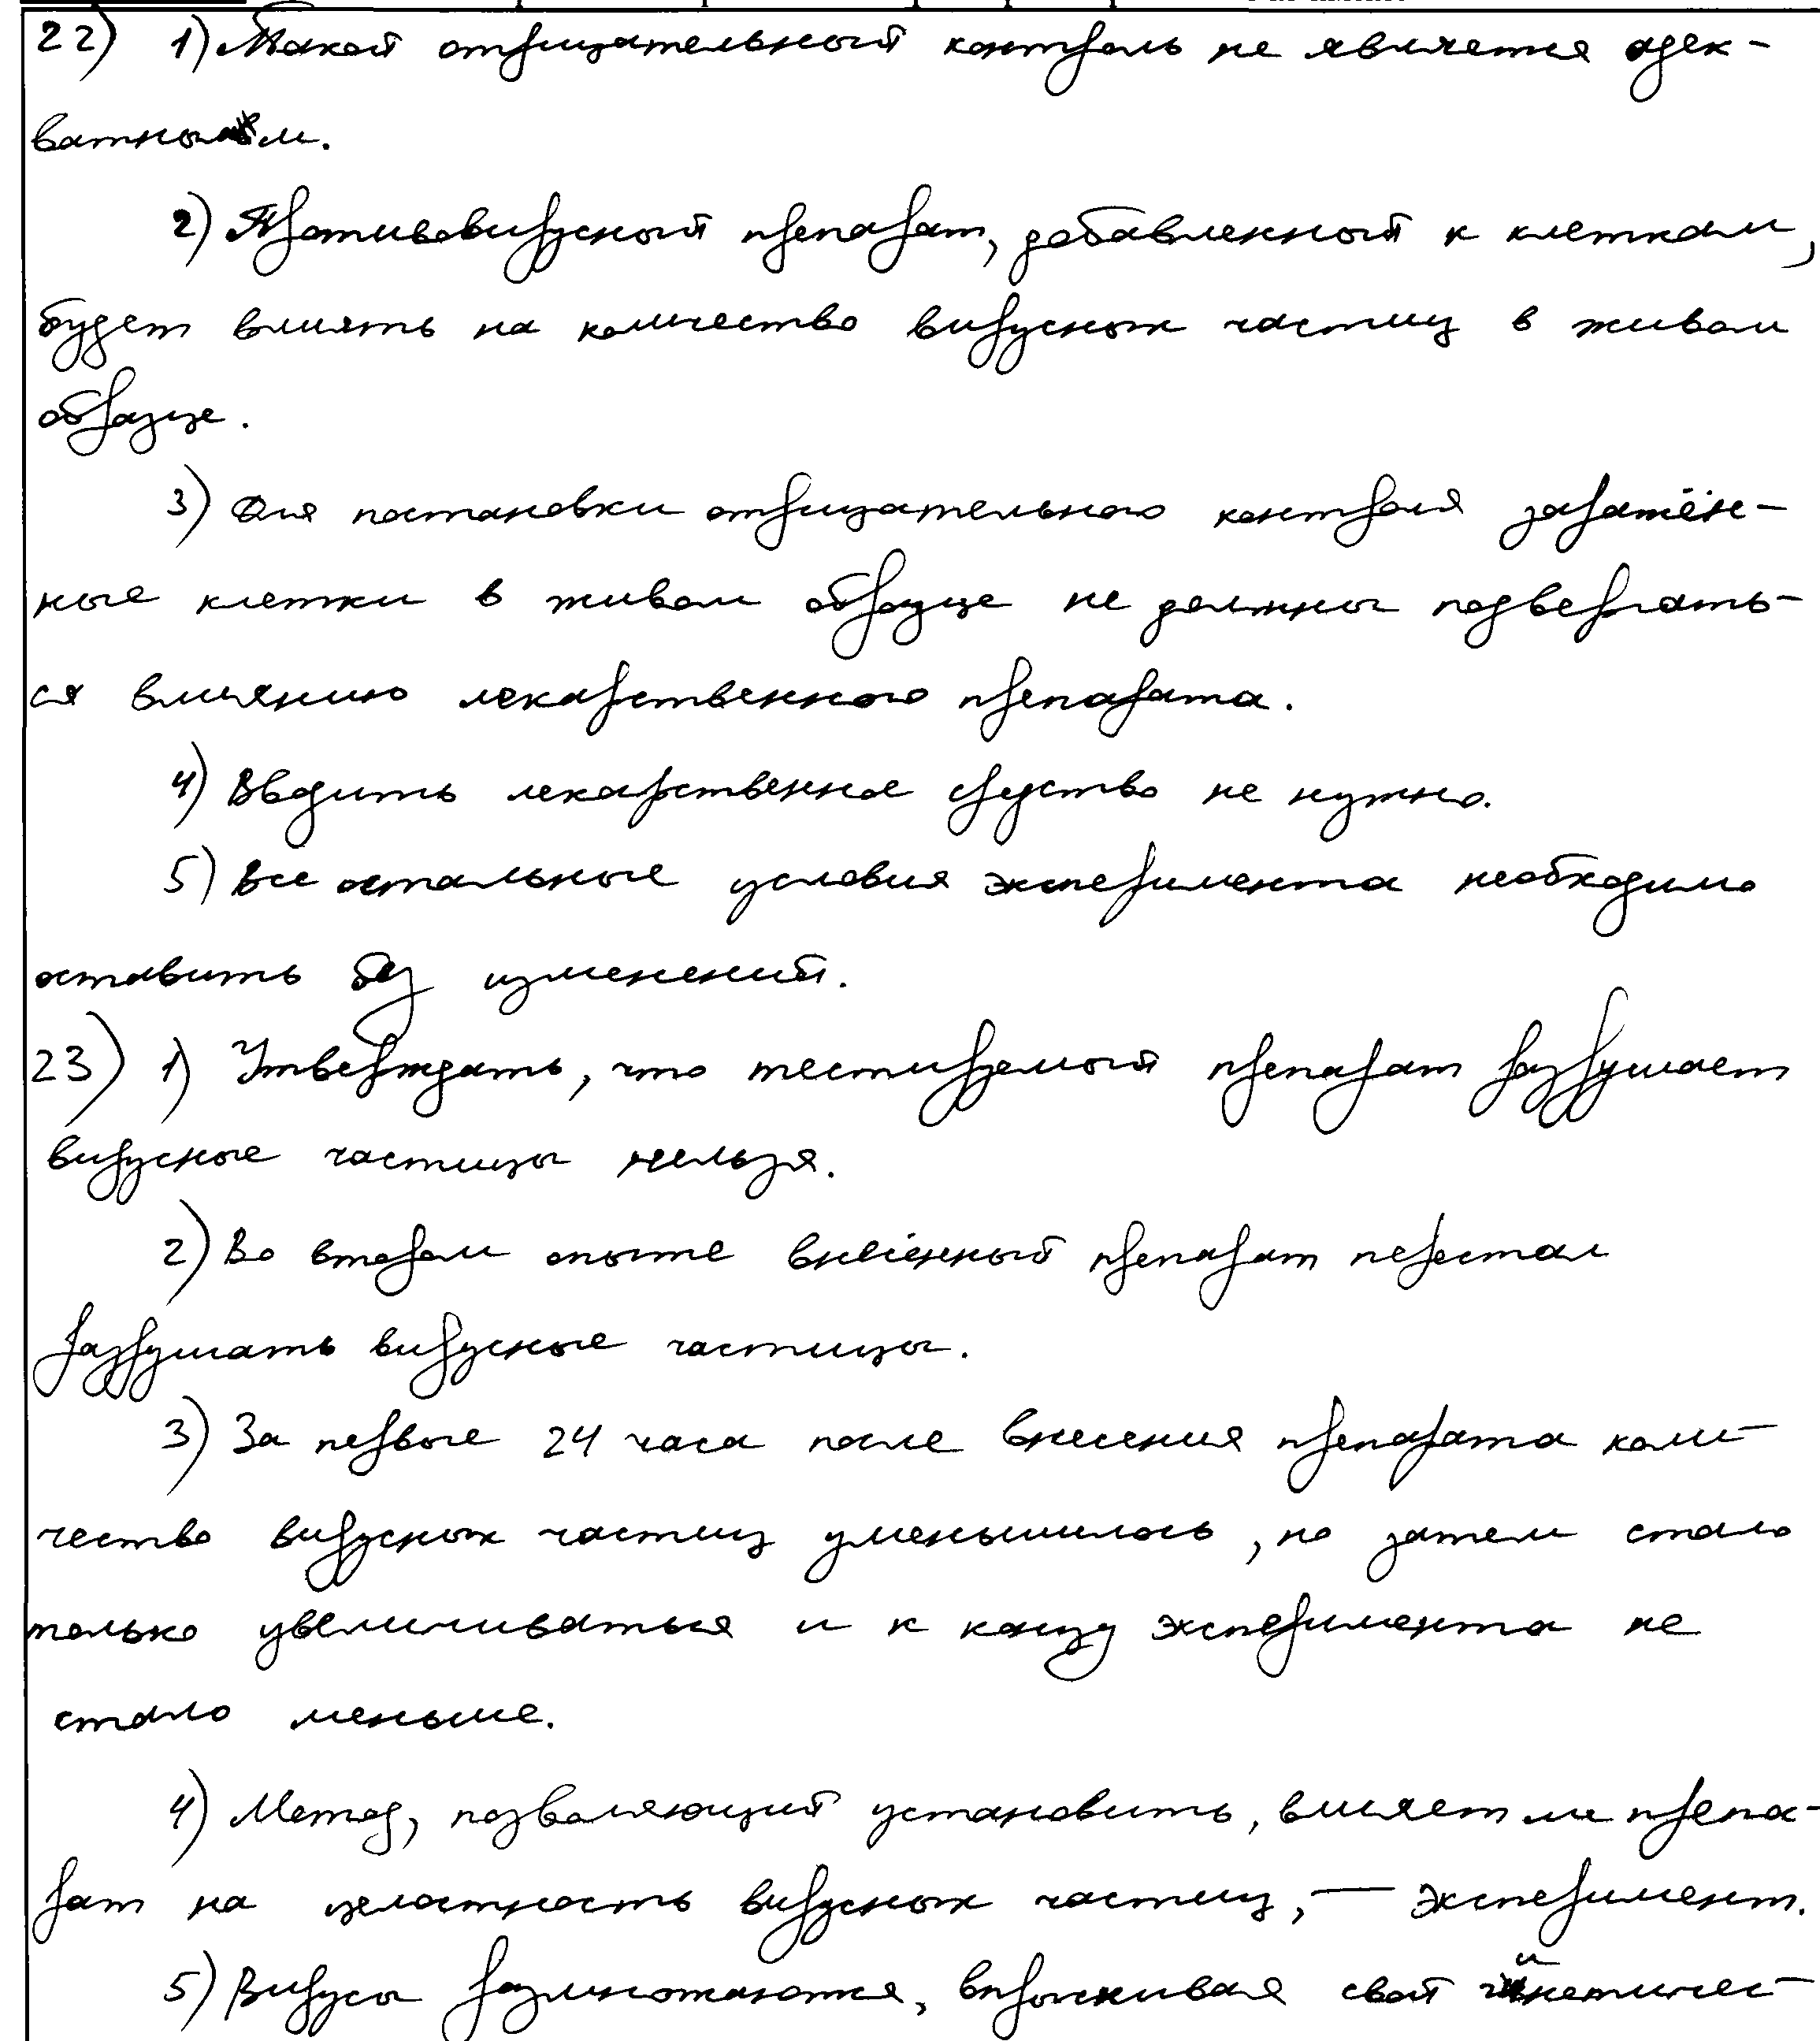 22) 1) Такой отрицательный контроль не является адек-
ватным.
2) Противовирусный препарат, добавленный к клеткам,
будет влиять на количество вирусных частиц в живом
образце.
3) Для постановки отрицательного контроля заражён-
ные клетки в живом образце не должны подвергать-
ся влиянию лекарственного препарата.
4) Вводить лекарственное средство не нужно.
5) Все остальные условия эксперимента необходимо
оставить без изменений.
23) 1) Утверждать, что тестируемый препарат разрушает
вирусные частицы нельзя.
2) Во втором опыте внесённый препарат перестал
разрушать вирусные частицы.
3) За первые 24 часа после внесения препарата коли-
чество вирусных частиц уменьшилось, но затем стало
только увеличиваться и к концу эксперимента не
стало меньше.
4) Метод, позволяющий установить, влияет ли препа-
рат на целостность вирусных частиц, — эксперимент.
5) Вирусы размножаются, впрыскивая свой